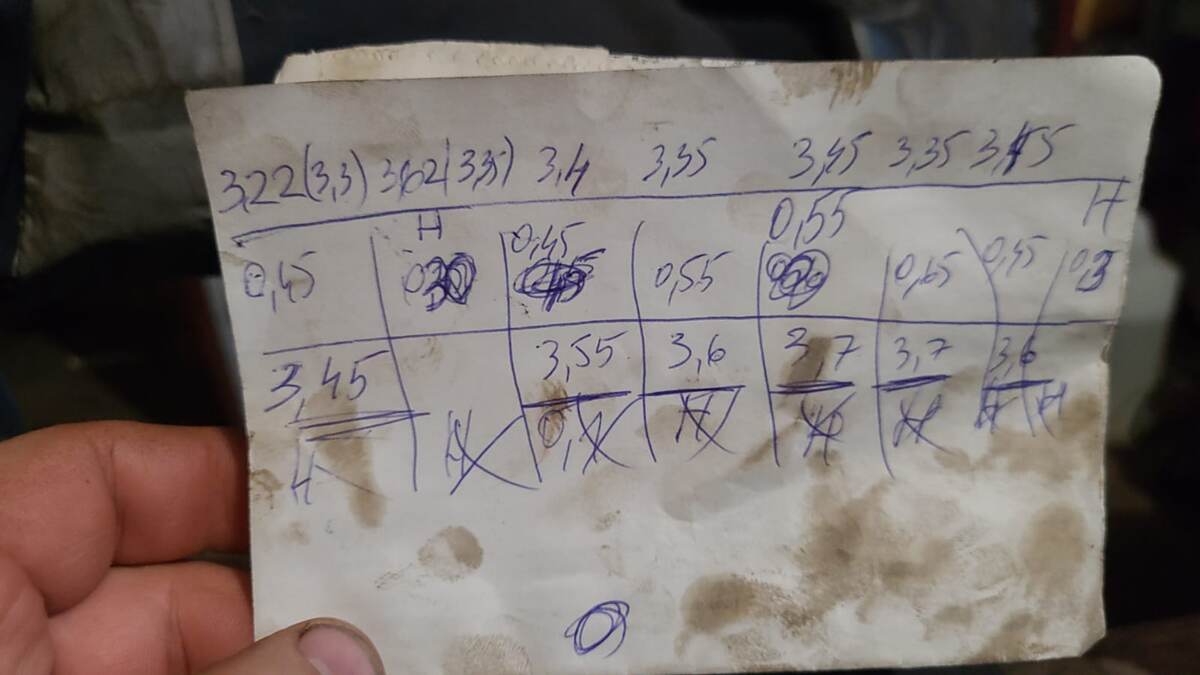 3,22(3,3) 3,62(3,35) 3,4 3,35 3,45 3,35 3,45
H 0,55 H
0,45 0,45 0,55 0,65 0,45 0,3
3,45 3,55 3,6 3,7 3,7 3,6
H H H H H H H